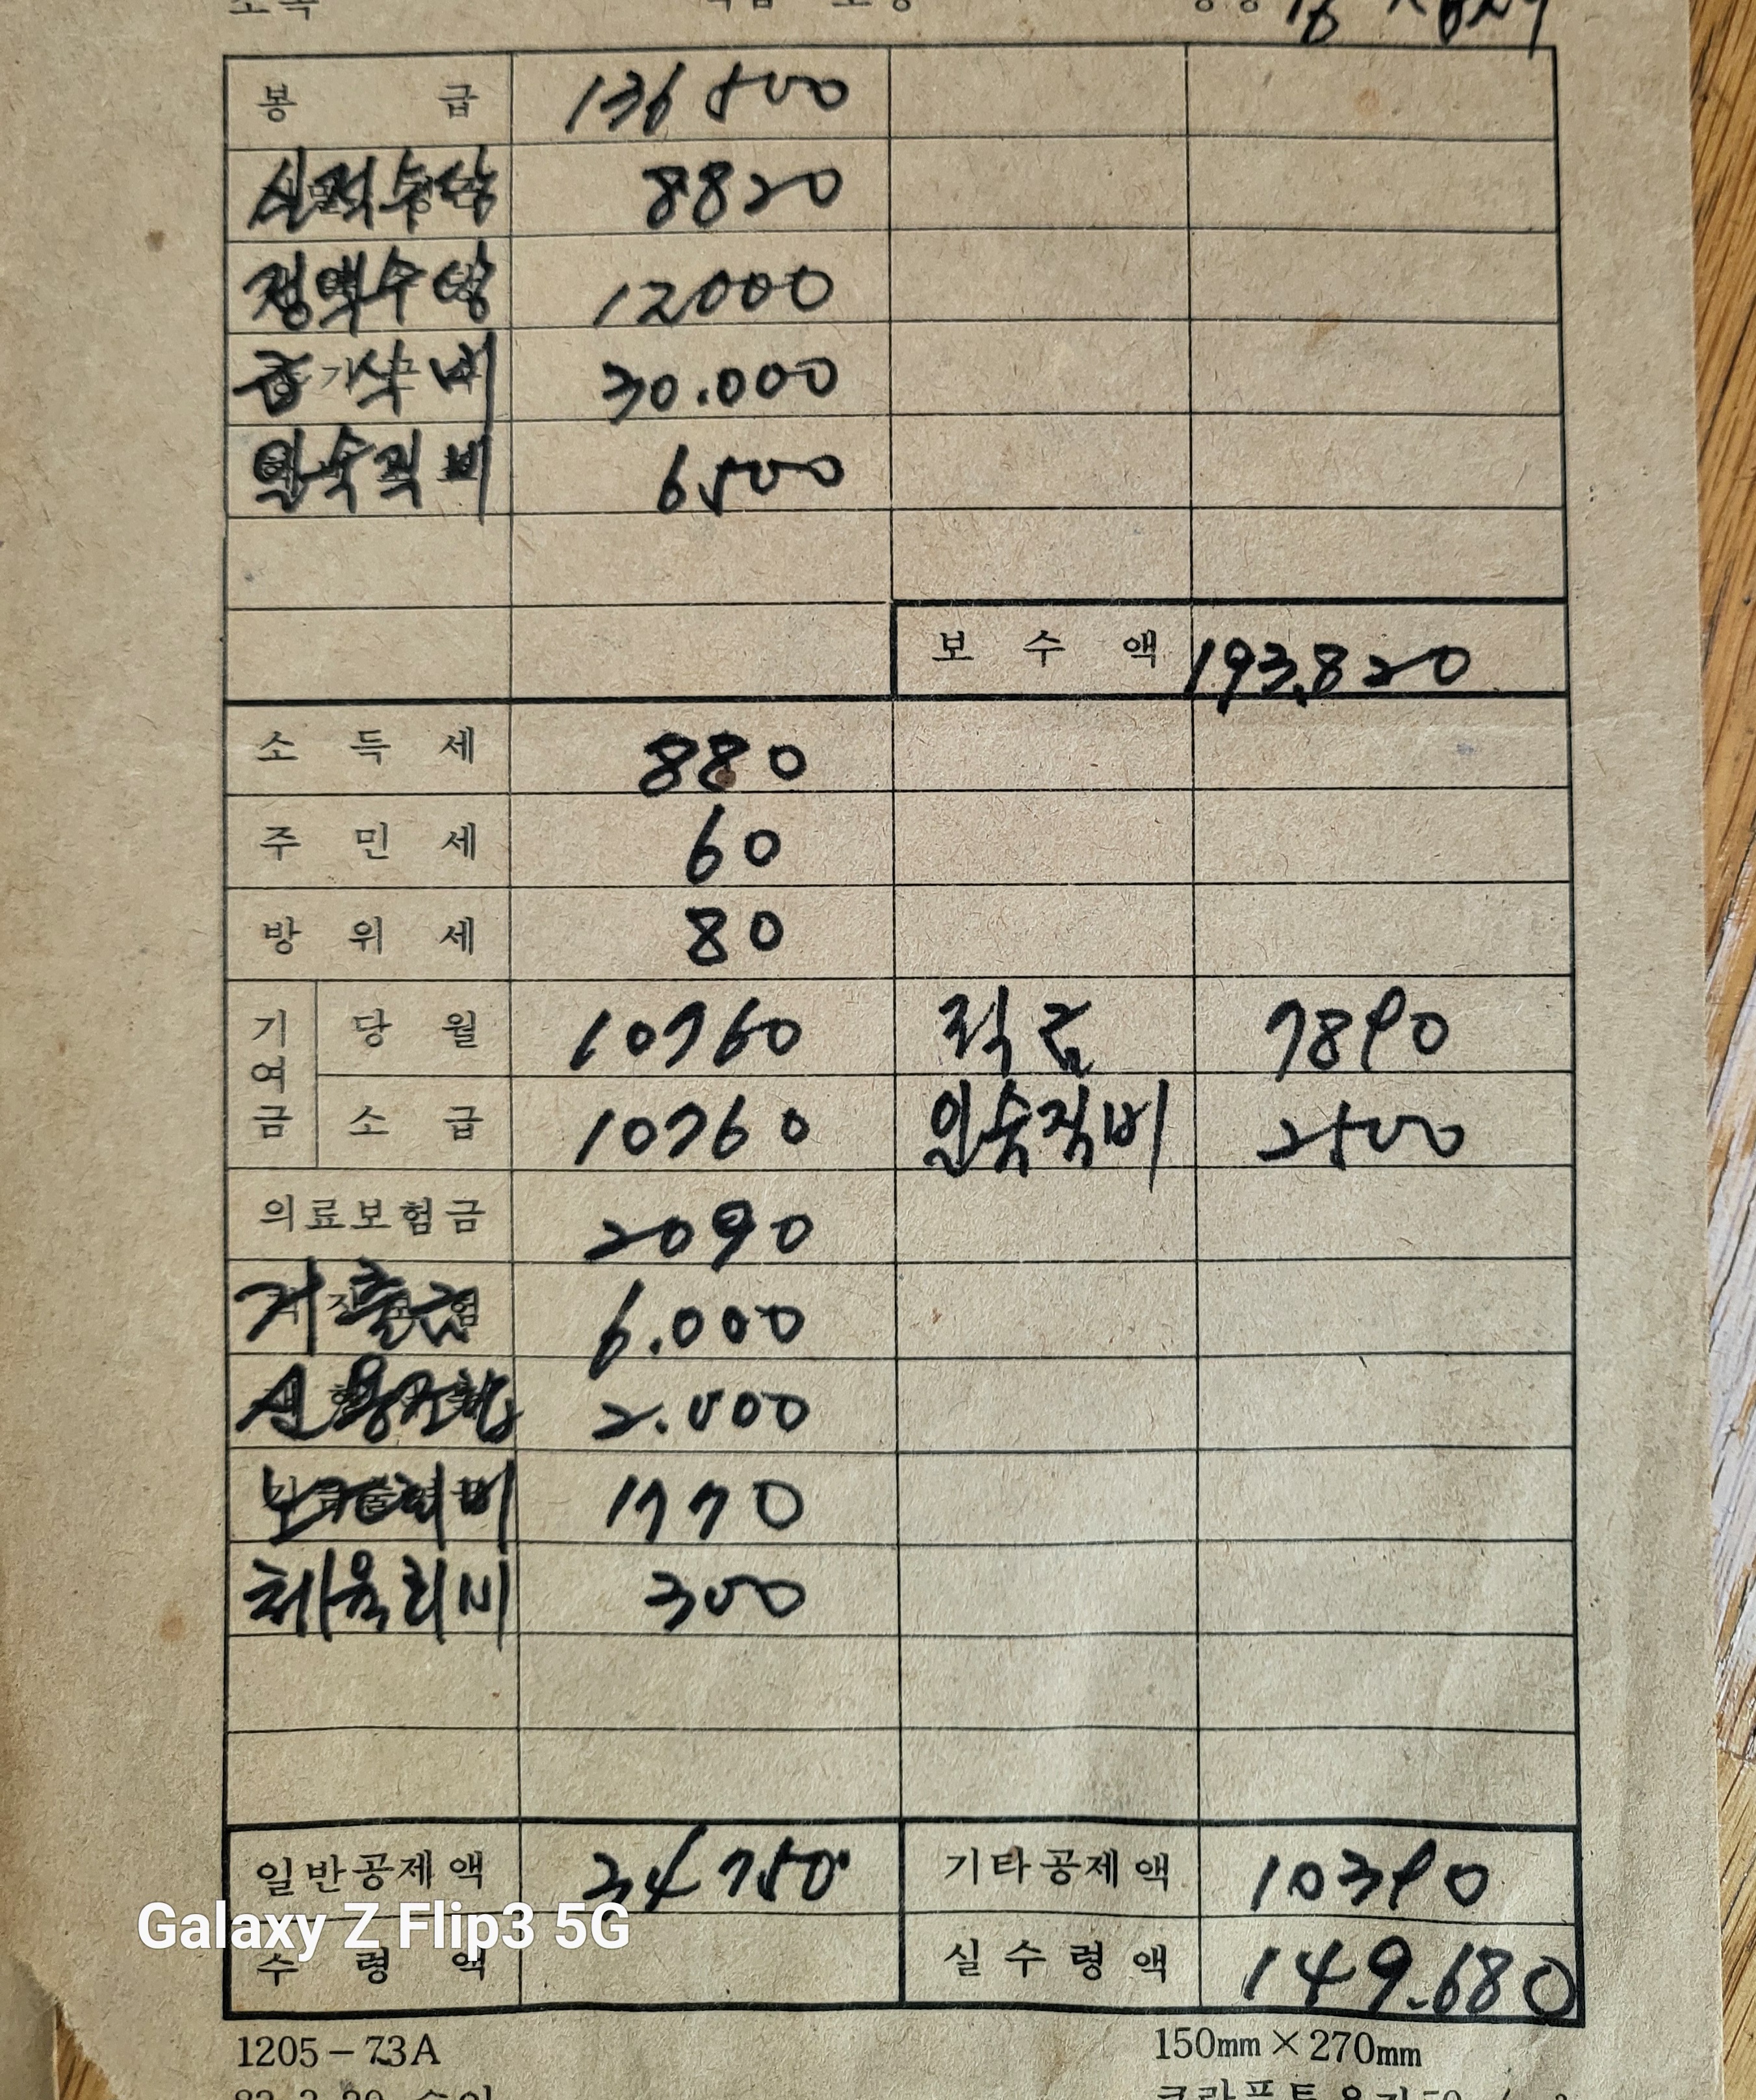 봉 급 136500
실적수당 8820
정액수당 12000
급식비 30.000
일숙직비 6500
보 수 액 193.820
소 득 세 880
주 민 세 60
방 위 세 80
기여금 당 월 10760 직급 7890
소 급 10760 일숙직비 2500
의료보험금 2090
갹출금 6.000
신용조합 2.000
1770
체육회비 300
일반공제액 34750 기타공제액 10390
Galaxy Z Flip3 5G
수 령 액 실수령액 149.680
1205-73A 150mm×270mm